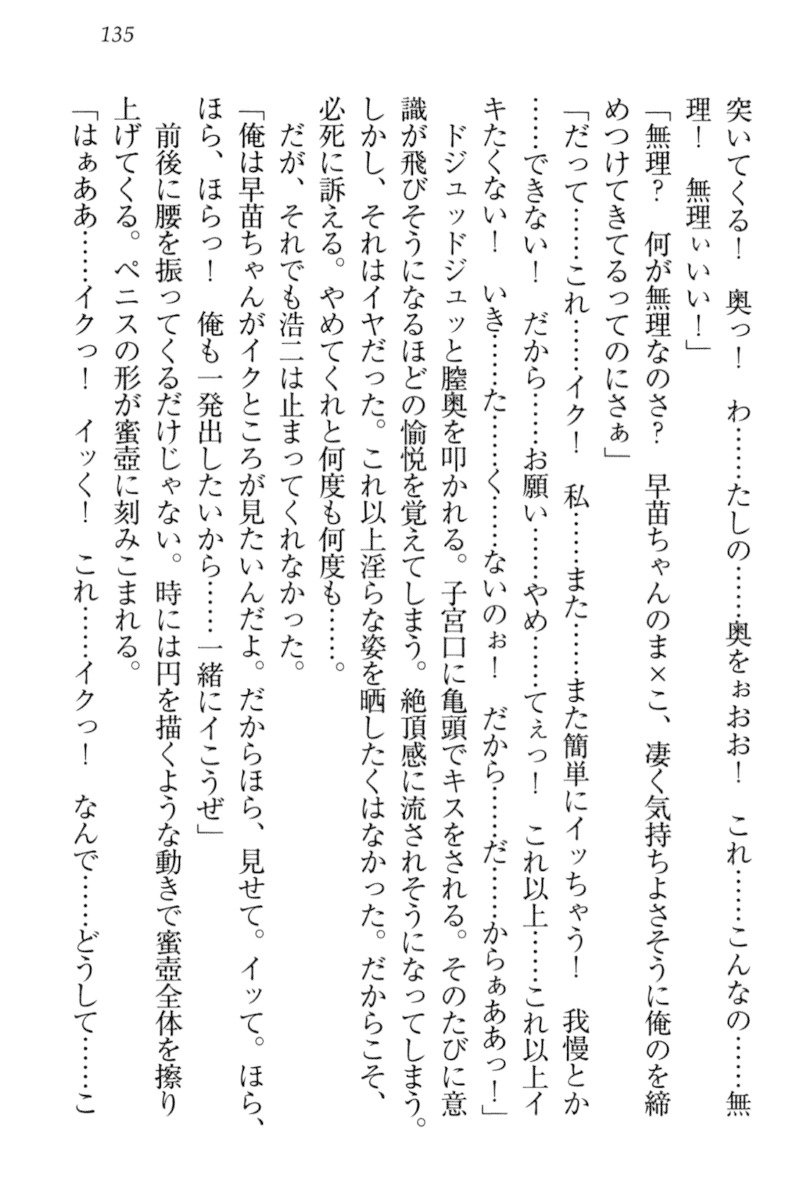 135
突いてくる！　奥っ！　わ……たしの……奥をぉおお！　これ……こんなの……無
理！　無理ぃいい！」
「無理？　何が無理なのさ？　早苗ちゃんのま×こ、凄く気持ちよさそうに俺のを締
めつけてきてるってのにさぁ」
「だって……これ……イク！　私……また……また簡単にイッちゃう！　我慢とか
……できない！　だから……お願い……やめ……てぇっ！　これ以上……これ以上イ
キたくない！　いき……た……く……ないのぉ！　だから……だ……からぁああっ！」
　ドジュッドジュッと膣奥を叩かれる。子宮口に亀頭でキスをされる。そのたびに意
識が飛びそうになるほどの愉悦を覚えてしまう。絶頂感に流されそうになってしまう。
しかし、それはイヤだった。これ以上淫らな姿を晒したくはなかった。だからこそ、
必死に訴える。やめてくれと何度も何度も……。
　だが、それでも浩二は止まってくれなかった。
「俺は早苗ちゃんがイクところが見たいんだよ。だからほら、見せて。イッて。ほら、
ほら、ほらっ！　俺も一発出したいから……一緒にイこうぜ」
　前後に腰を振ってくるだけじゃない。時には円を描くような動きで蜜壺全体を擦り
上げてくる。ペニスの形が蜜壺に刻みこまれる。
「はぁああ……イクっ！　イッく！　これ……イクっ！　なんで……どうして……こ